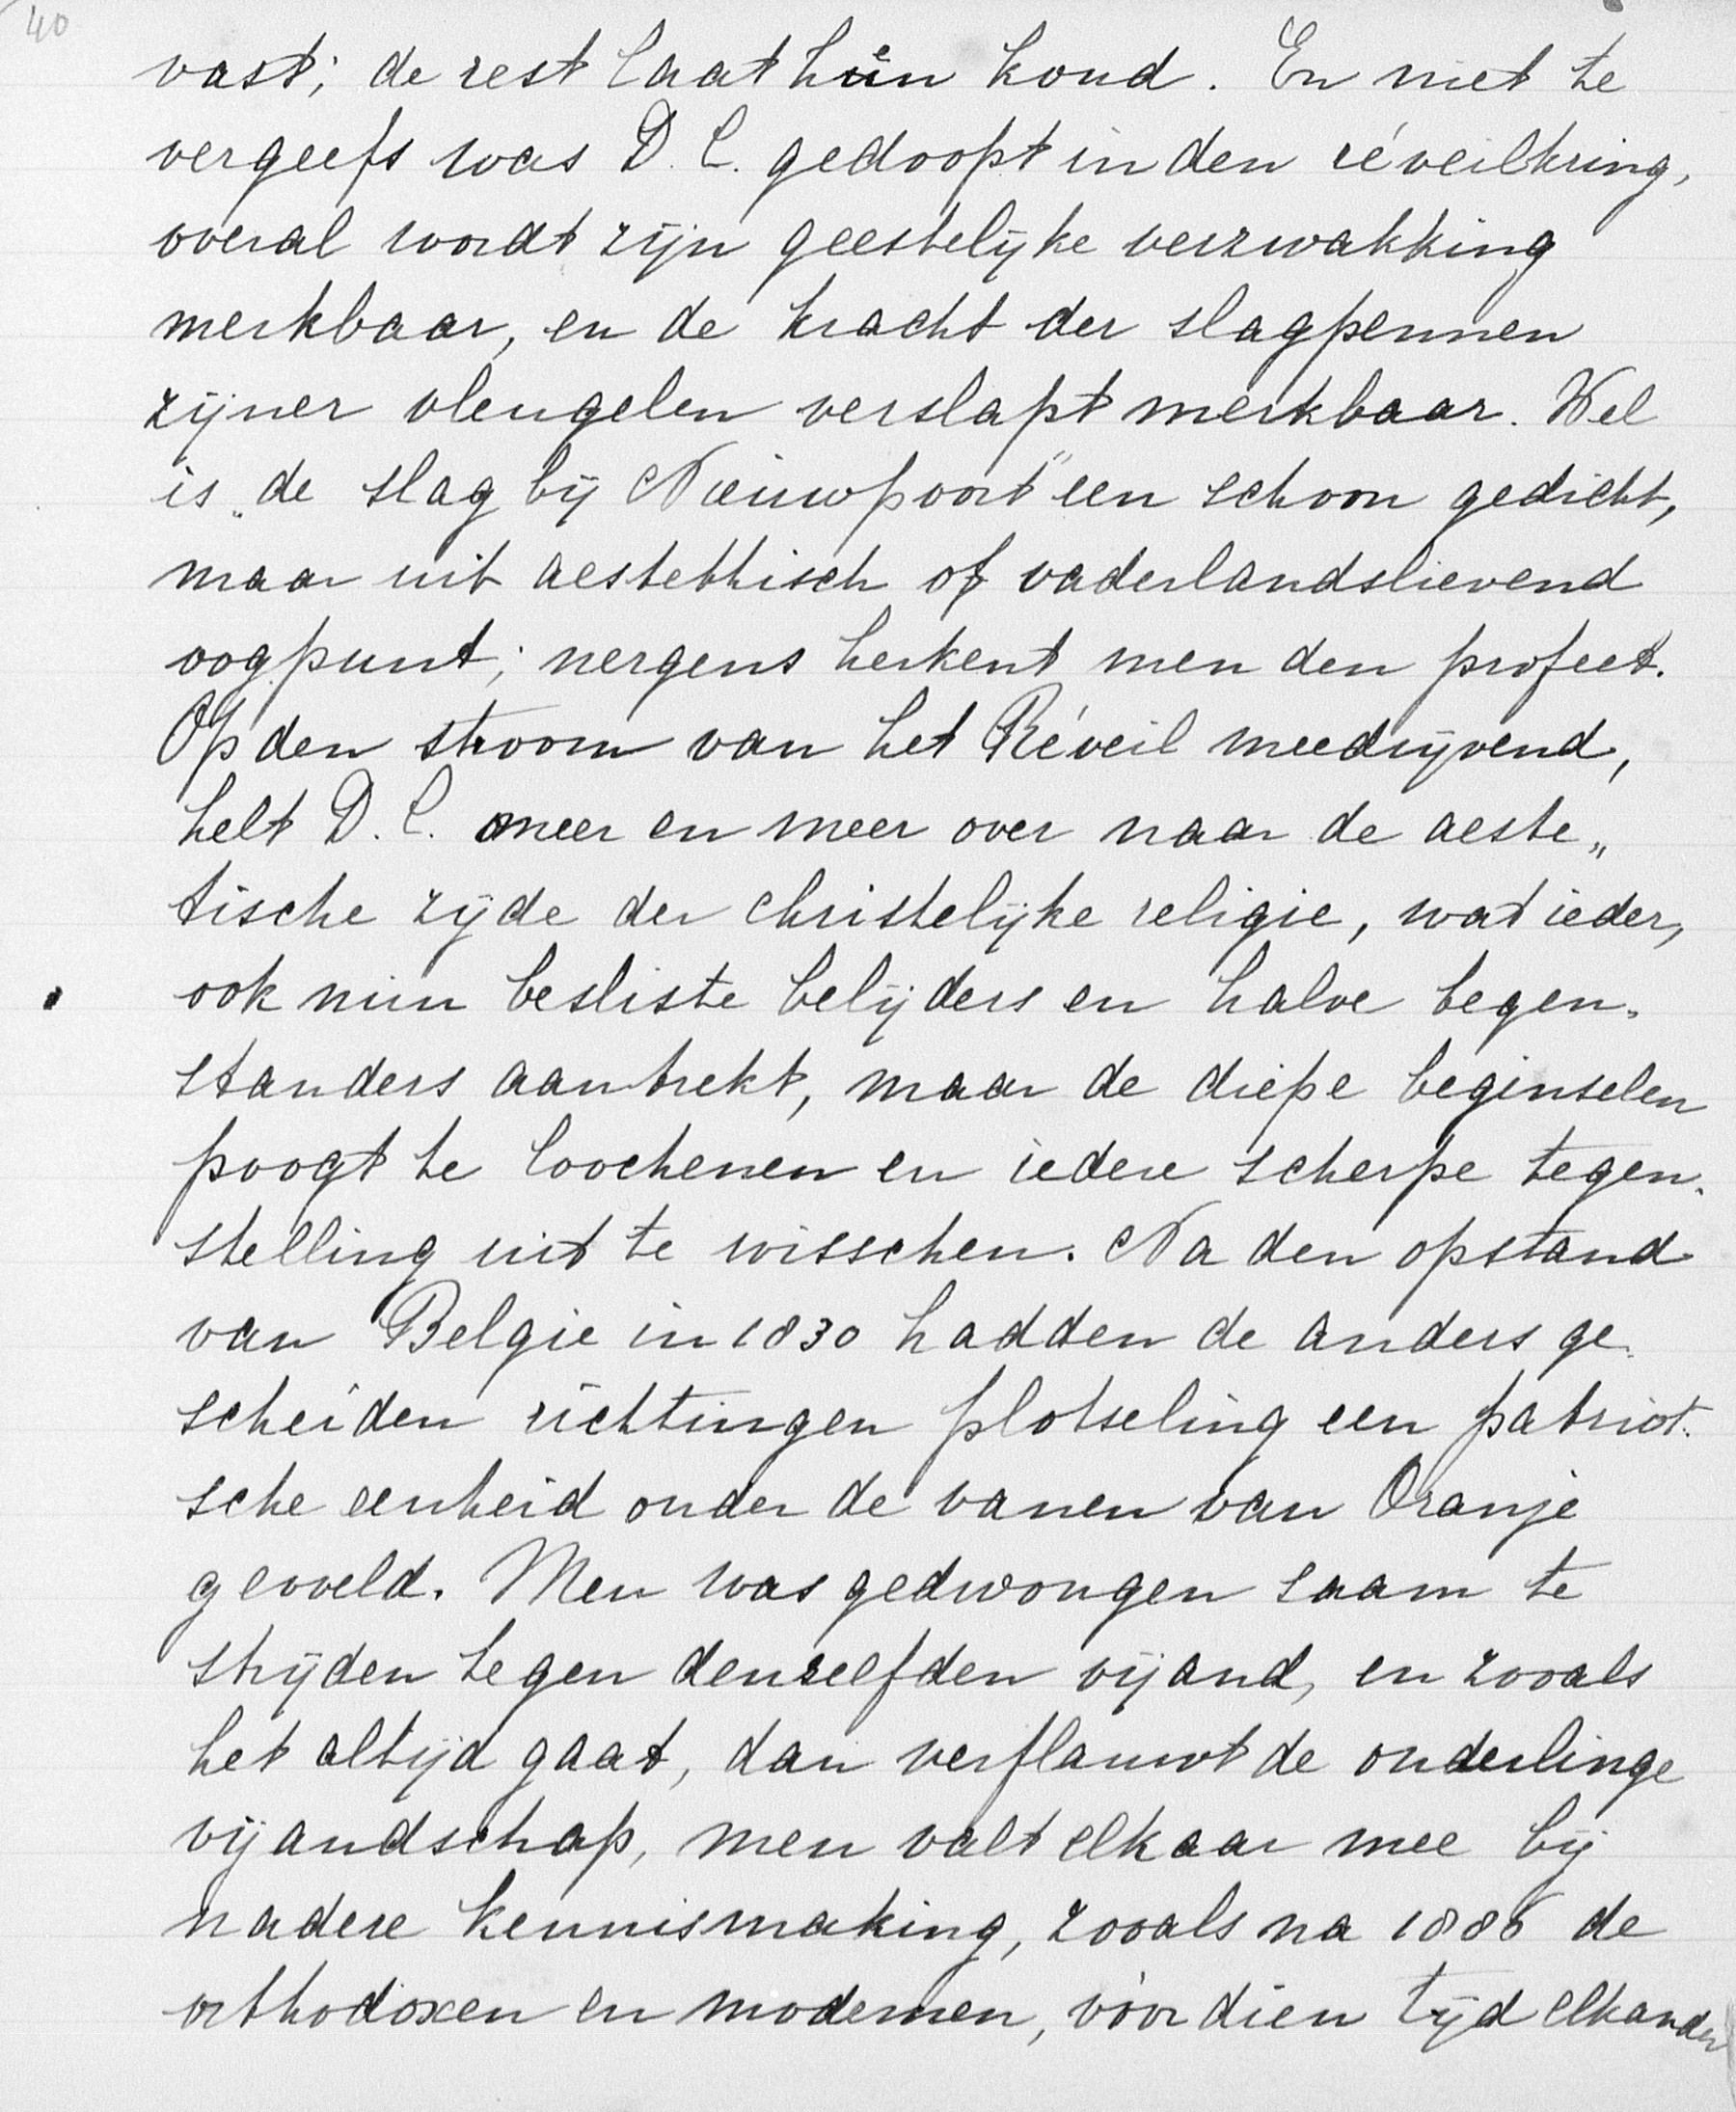 40
vast; de rest laat hún koud. En niet te
vergeefs was D. C. gedoopt in den réveilkring,
overal wordt zijn geestelijke verzwakking
merkbaar, en de kracht der slagpennen
zijner vleugelen verslapt merkbaar. Wel
is „de slag bij Nieuwpoort" een schoon gedicht,
maar uit aestethisch of vaderlandslievend
oogpunt; nergens herkent men den profeet.
Op den stroom van het Réveil meedrijvend,
helt D. C. meer en meer over naar de aeste„
tische zijde der christelijke religie, wat ieder,
ook min besliste belijders en halve tegen-
standers aantrekt, maar de diepe beginselen
poogt te loochenen en iedere scherpe tegen-
stelling uit te wisschen. Na den opstand
van Belgie in 1830 hadden de anders ge-
scheiden richtingen plotseling een patriot-
sche eenheid onder de vanen van Oranje
gevoeld. Men was gedwongen saam te
strijden tegen denzelfden vijand, en zooals
het altijd gaat, dan verflauwt de onderlinge
vijandschap, men valt elkaar mee bij
nadere kennismaking, zooals na 1886 de
orthodoxen en modernen, vóór dien tijd elkander